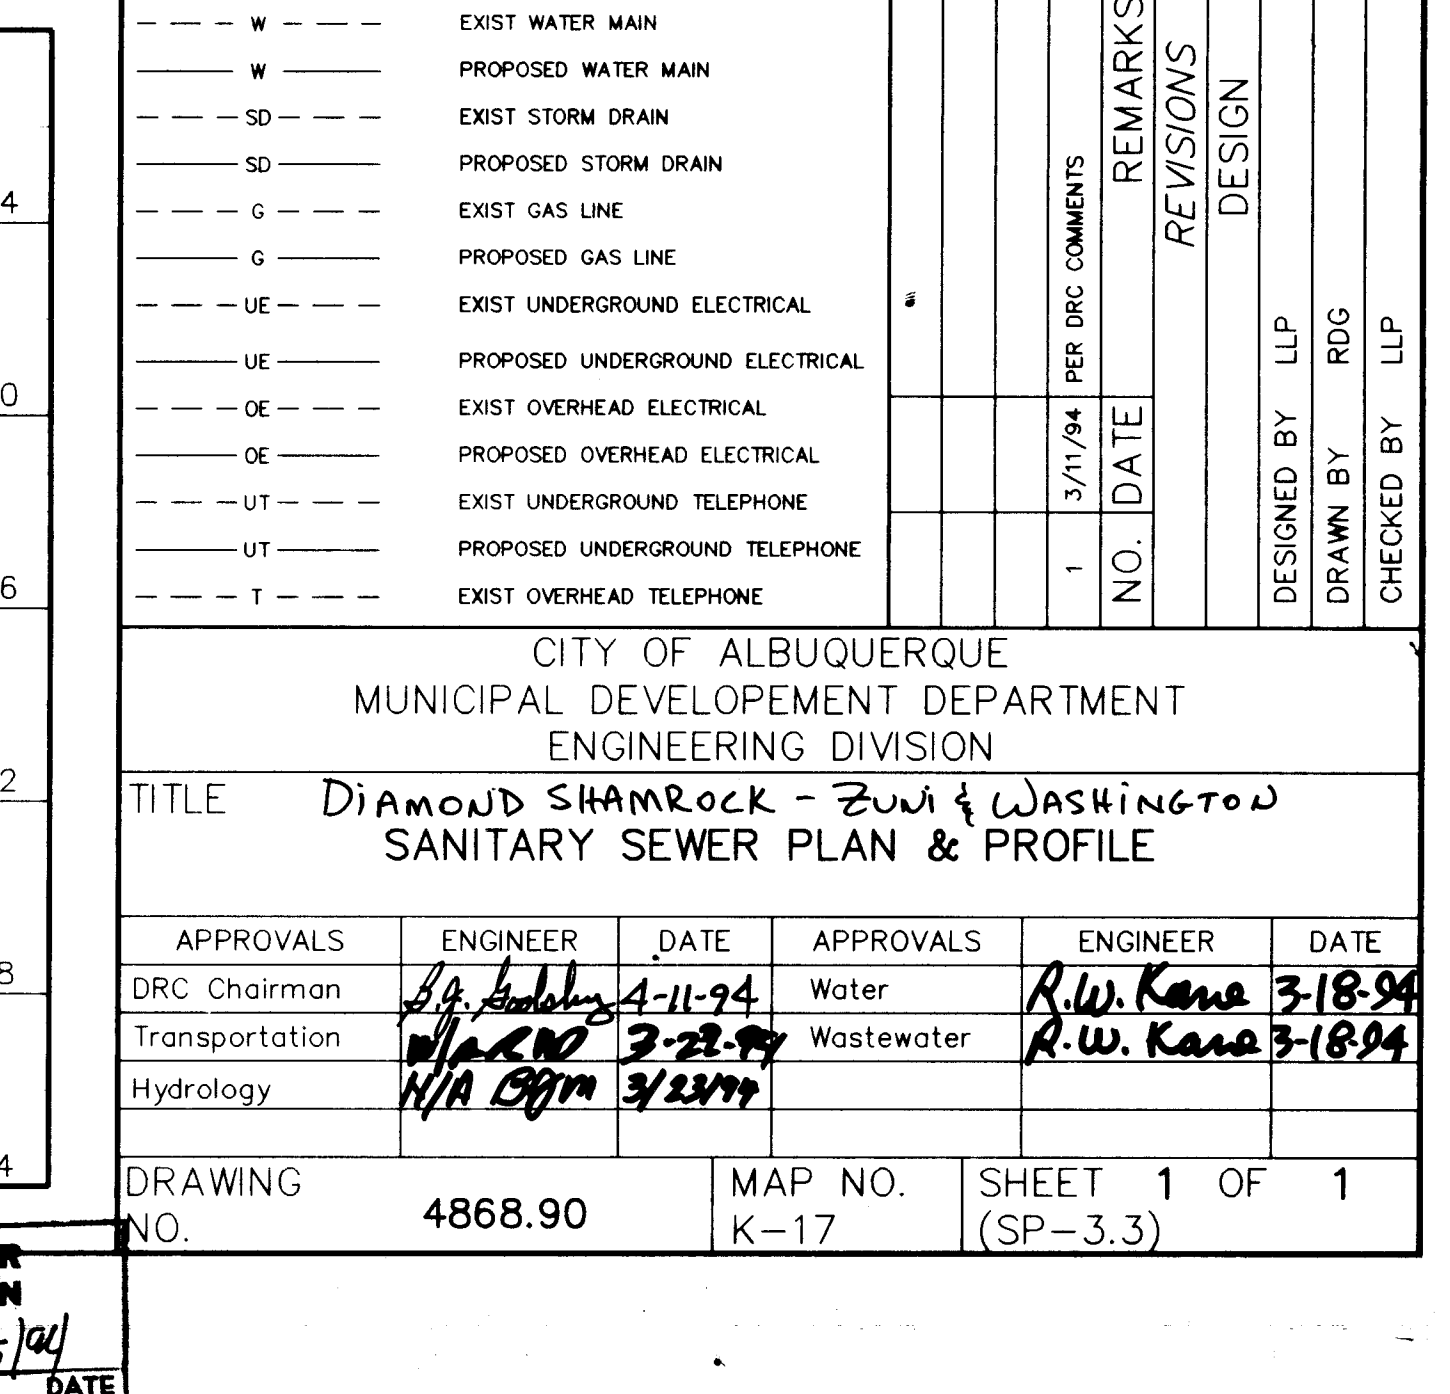 W EXIST WATER MAIN
W PROPOSED WATER MAIN
SD EXIST STORM DRAIN
SD PROPOSED STORM DRAIN
G EXIST GAS LINE
G PROPOSED GAS LINE
UE EXIST UNDERGROUND ELECTRICAL
UE PROPOSED UNDERGROUND ELECTRICAL
OE EXIST OVERHEAD ELECTRICAL
OE PROPOSED OVERHEAD ELECTRICAL
UT EXIST UNDERGROUND TELEPHONE
UT PROPOSED UNDERGROUND TELEPHONE
T EXIST OVERHEAD TELEPHONE
1 3/11/94 PER DRC COMMENTS
NO. DATE REMARKS
REVISIONS
DESIGN
DESIGNED BY LLP
DRAWN BY RDG
CHECKED BY LLP
4
0
6
2
8
4
CITY OF ALBUQUERQUE
MUNICIPAL DEVELOPEMENT DEPARTMENT
ENGINEERING DIVISION
TITLE DIAMOND SHAMROCK - ZUNI & WASHINGTON
SANITARY SEWER PLAN & PROFILE
APPROVALS ENGINEER DATE APPROVALS ENGINEER DATE
DRC Chairman 4-11-94 Water R.W. Kane 3-18-94
Transportation 3-22-94 Wastewater R.W. Kane 3-18-94
Hydrology N/A BJM 3/23/94
DRAWING NO. 4868.90
MAP NO. K-17
SHEET 1 OF 1
(SP-3.3)
DATE